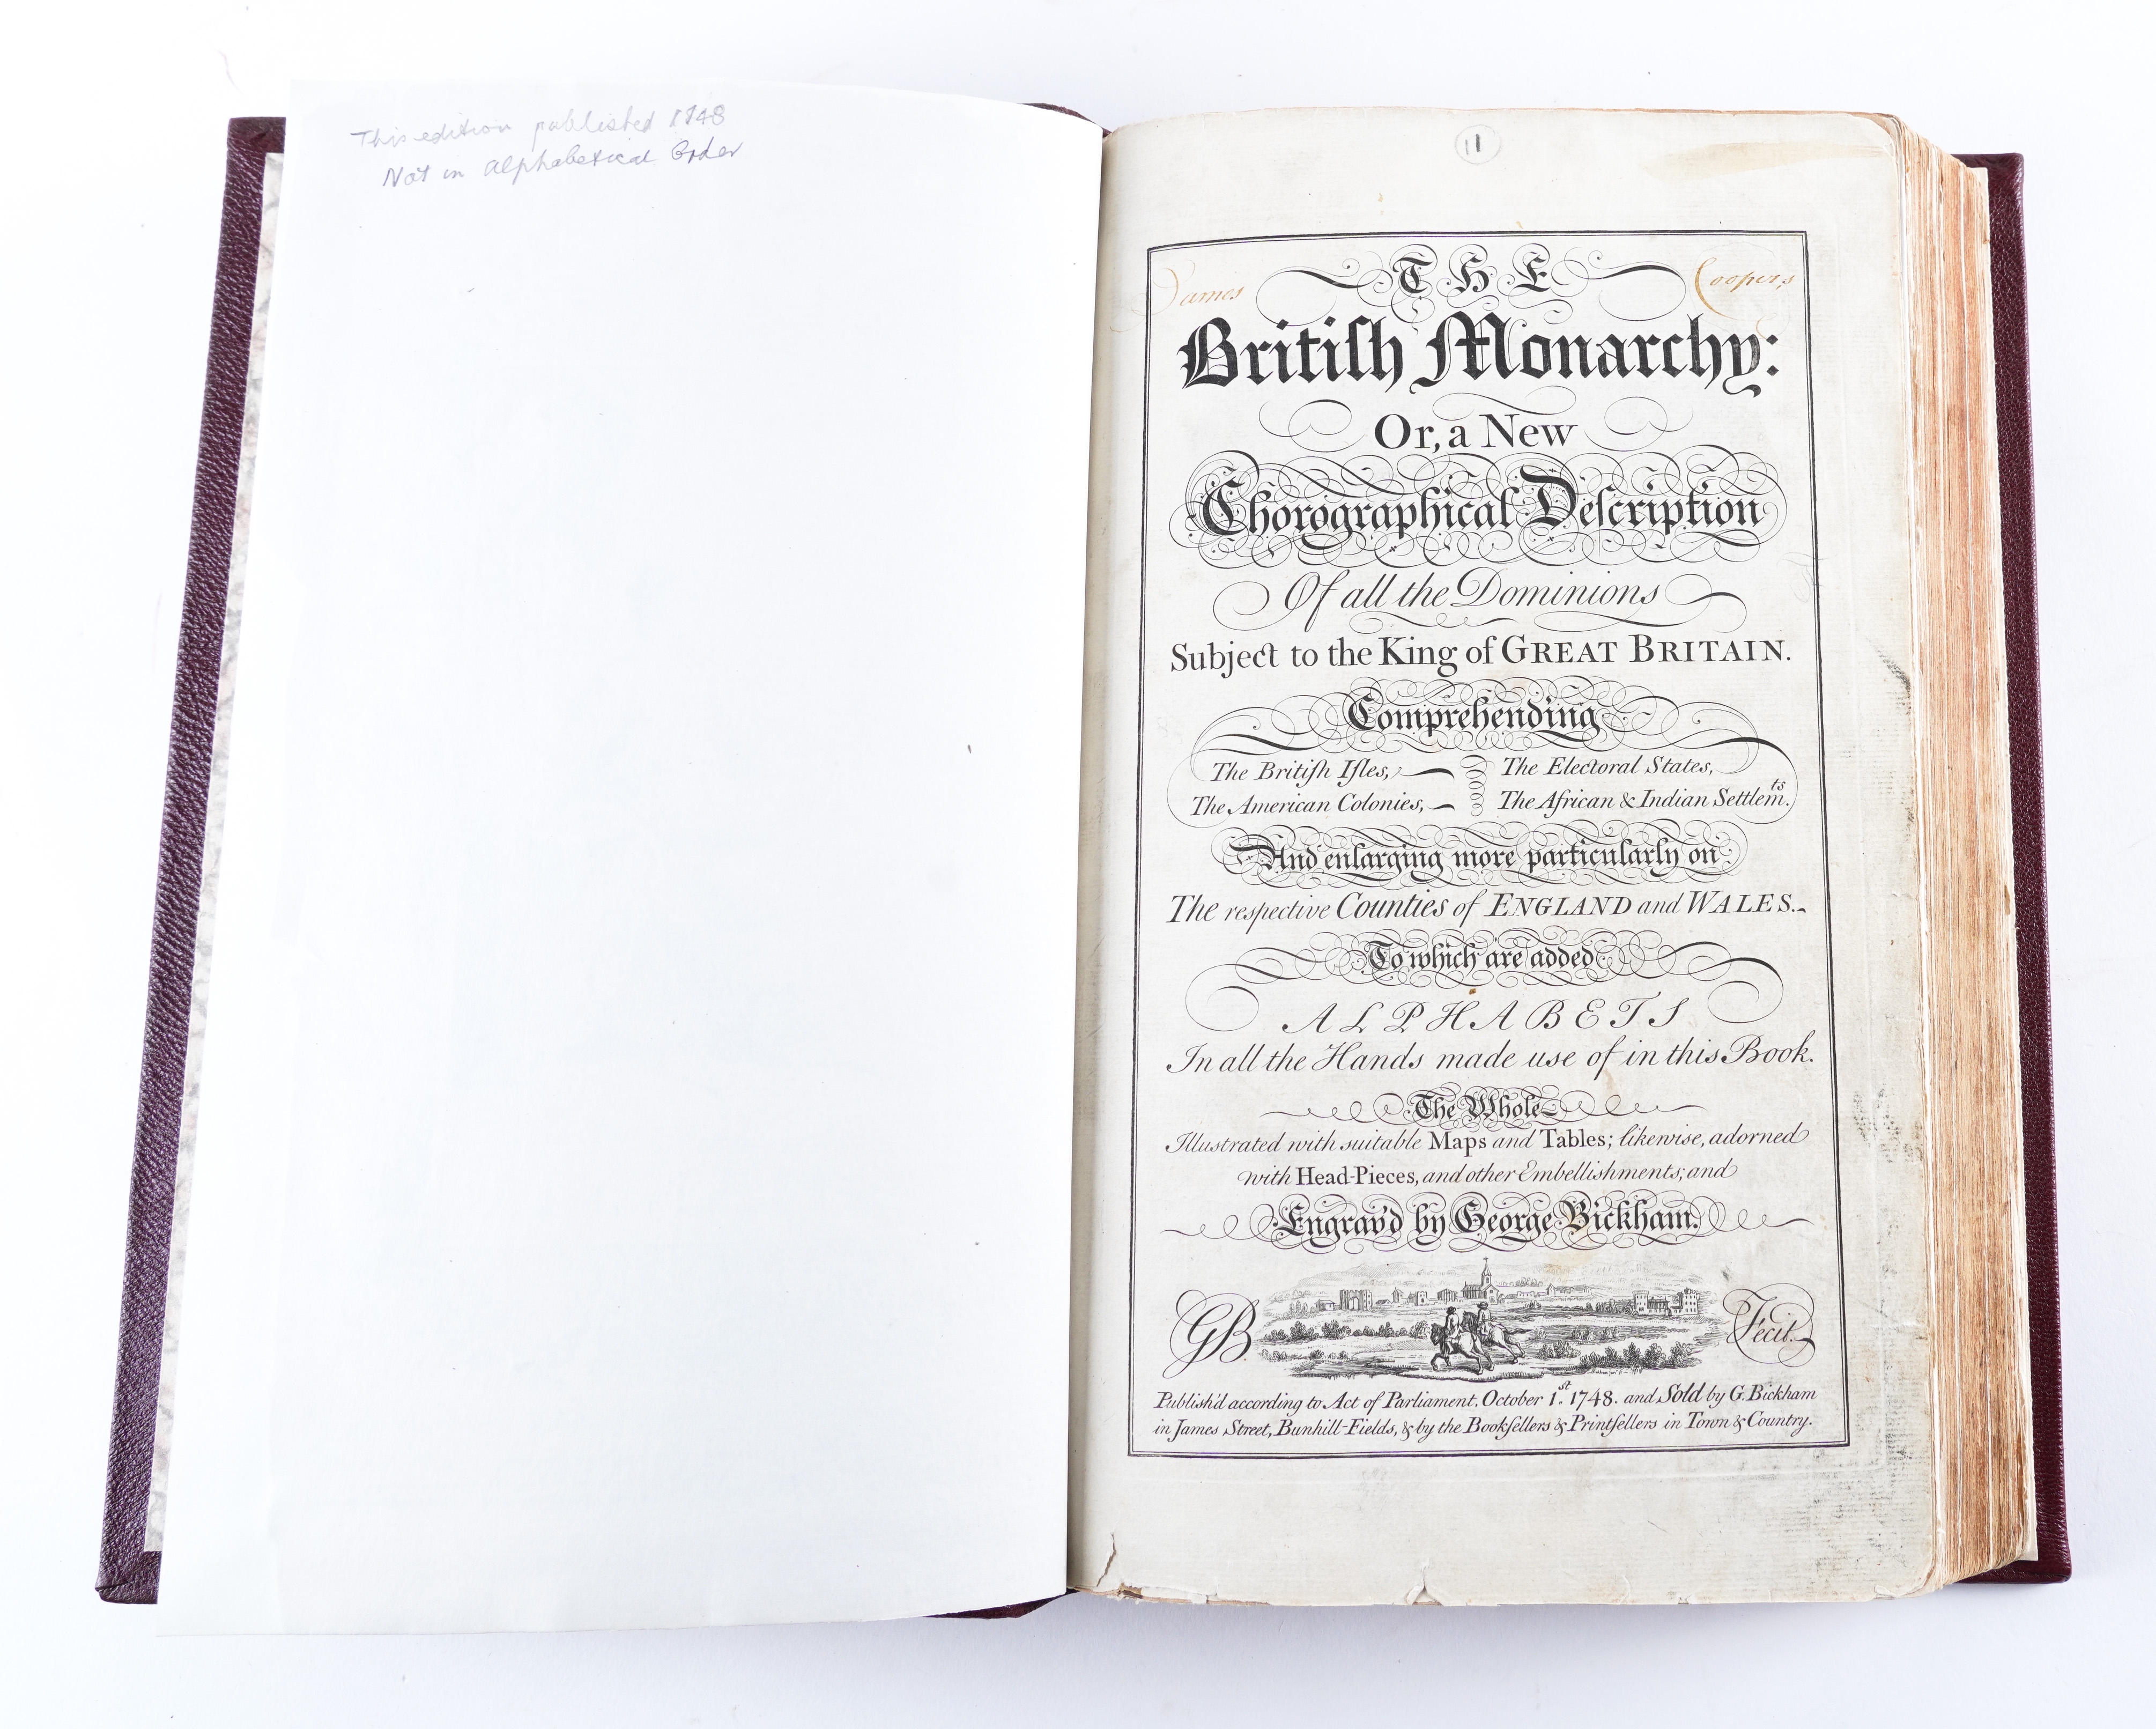 This edition published 1748
Not in alphabetical Order
11
James Coopers
THE
Britiſh Monarchy:
Or, a New
Chorographical Deſcription
Of all the Dominions
Subject to the King of GREAT BRITAIN.
Comprehending
The Britiſh Iſles, The Electoral States,
The American Colonies, The African & Indian Settlemts.
And enlarging more particularly on
The respective Counties of ENGLAND and WALES.
To which are added
ALPHABETS
In all the Hands made use of in this Book.
The Whole
Illustrated with suitable Maps and Tables; likewise, adorned
with Head-Pieces, and other Embellishments; and
Engrav'd by George Bickham.
GB Fecit.
Publish'd according to Act of Parliament, October 1st. 1748. and Sold by G. Bickham
in James Street, Bunhill-Fields, & by the Bookſellers & Printſellers in Town & Country.